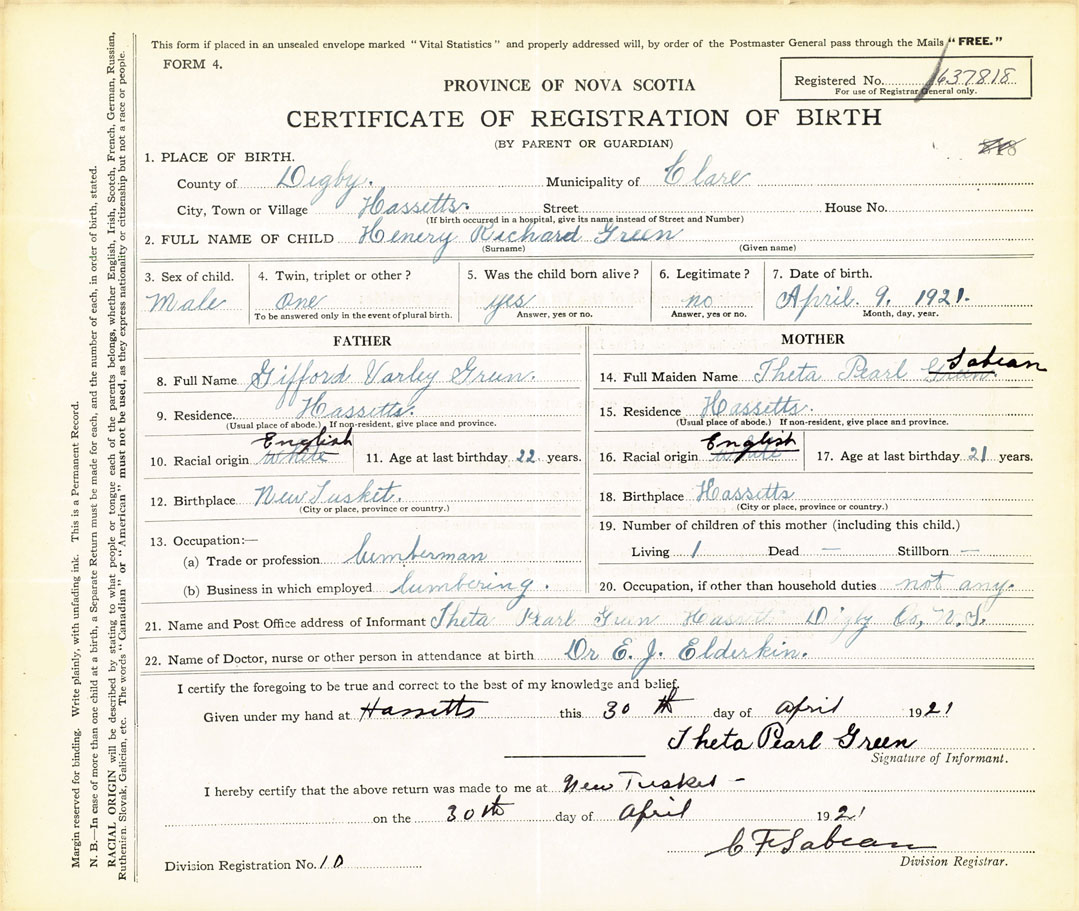 This form if placed in an unsealed envelope marked "Vital Statistics" and properly addressed will, by order of the Postmaster General pass through the Mails "FREE."
FORM 4.
Registered No. 1637818
For use of Registrar General only.
PROVINCE OF NOVA SCOTIA
CERTIFICATE OF REGISTRATION OF BIRTH
(BY PARENT OR GUARDIAN)
1. PLACE OF BIRTH.
County of Digby. Municipality of Clare
City, Town or Village Hassetts. Street House No.
(If birth occurred in a hospital, give its name instead of Street and Number)
2. FULL NAME OF CHILD Henery Richard Green
(Surname) (Given name)
3. Sex of child. 4. Twin, triplet or other? 5. Was the child born alive? 6. Legitimate? 7. Date of birth.
Male One yes no April. 9. 1921.
To be answered only in the event of plural birth. Answer, yes or no. Answer, yes or no. Month, day, year.
FATHER
8. Full Name Gifford Varley Green.
9. Residence. Hassetts.
(Usual place of abode.) If non-resident, give place and province.
English
10. Racial origin White 11. Age at last birthday 22 years.
12. Birthplace New Tusket.
(City or place, province or country.)
13. Occupation:—
(a) Trade or profession lumberman
(b) Business in which employed lumbering.
MOTHER
Sabean
14. Full Maiden Name Theta Pearl Green.
15. Residence Hassetts.
(Usual place of abode.) If non-resident, give place and province.
English
16. Racial origin White 17. Age at last birthday 21 years.
18. Birthplace Hassetts
(City or place, province or country.)
19. Number of children of this mother (including this child.)
Living 1 Dead — Stillborn —
20. Occupation, if other than household duties not any.
21. Name and Post Office address of Informant Theta Pearl Green Hassetts Digby Co, N.S.
22. Name of Doctor, nurse or other person in attendance at birth Dr E. J. Elderkin.
I certify the foregoing to be true and correct to the best of my knowledge and belief.
Given under my hand at Hassetts this 30th day of April 1921
Theta Pearl Green
Signature of Informant.
I hereby certify that the above return was made to me at New Tusket -
on the 30th day of April 1921
C F Sabean
Division Registrar.
Division Registration No. 10
Margin reserved for binding. Write plainly, with unfading ink. This is a Permanent Record.
N. B.—In case of more than one child at a birth, a Separate Return must be made for each, and the number of each, in order of birth, stated.
RACIAL ORIGIN will be described by stating to what people or tongue each of the parents belongs, whether English, Irish, Scotch, French, German, Russian,
Ruthenian, Slovak, Galician, etc. The words "Canadian" or "American" must not be used, as they express nationality or citizenship but not a race or people.